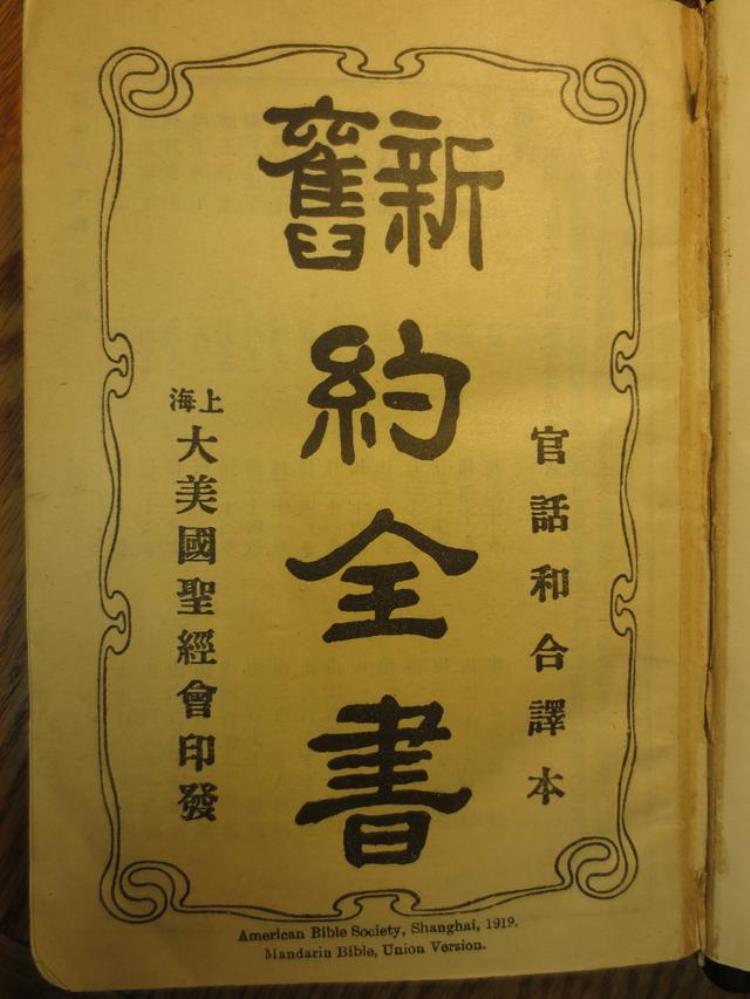 官話和合譯本
新舊約全書
上海
大美國聖經會印發
American Bible Society, Shanghai, 1919.
Mandarin Bible, Union Version.